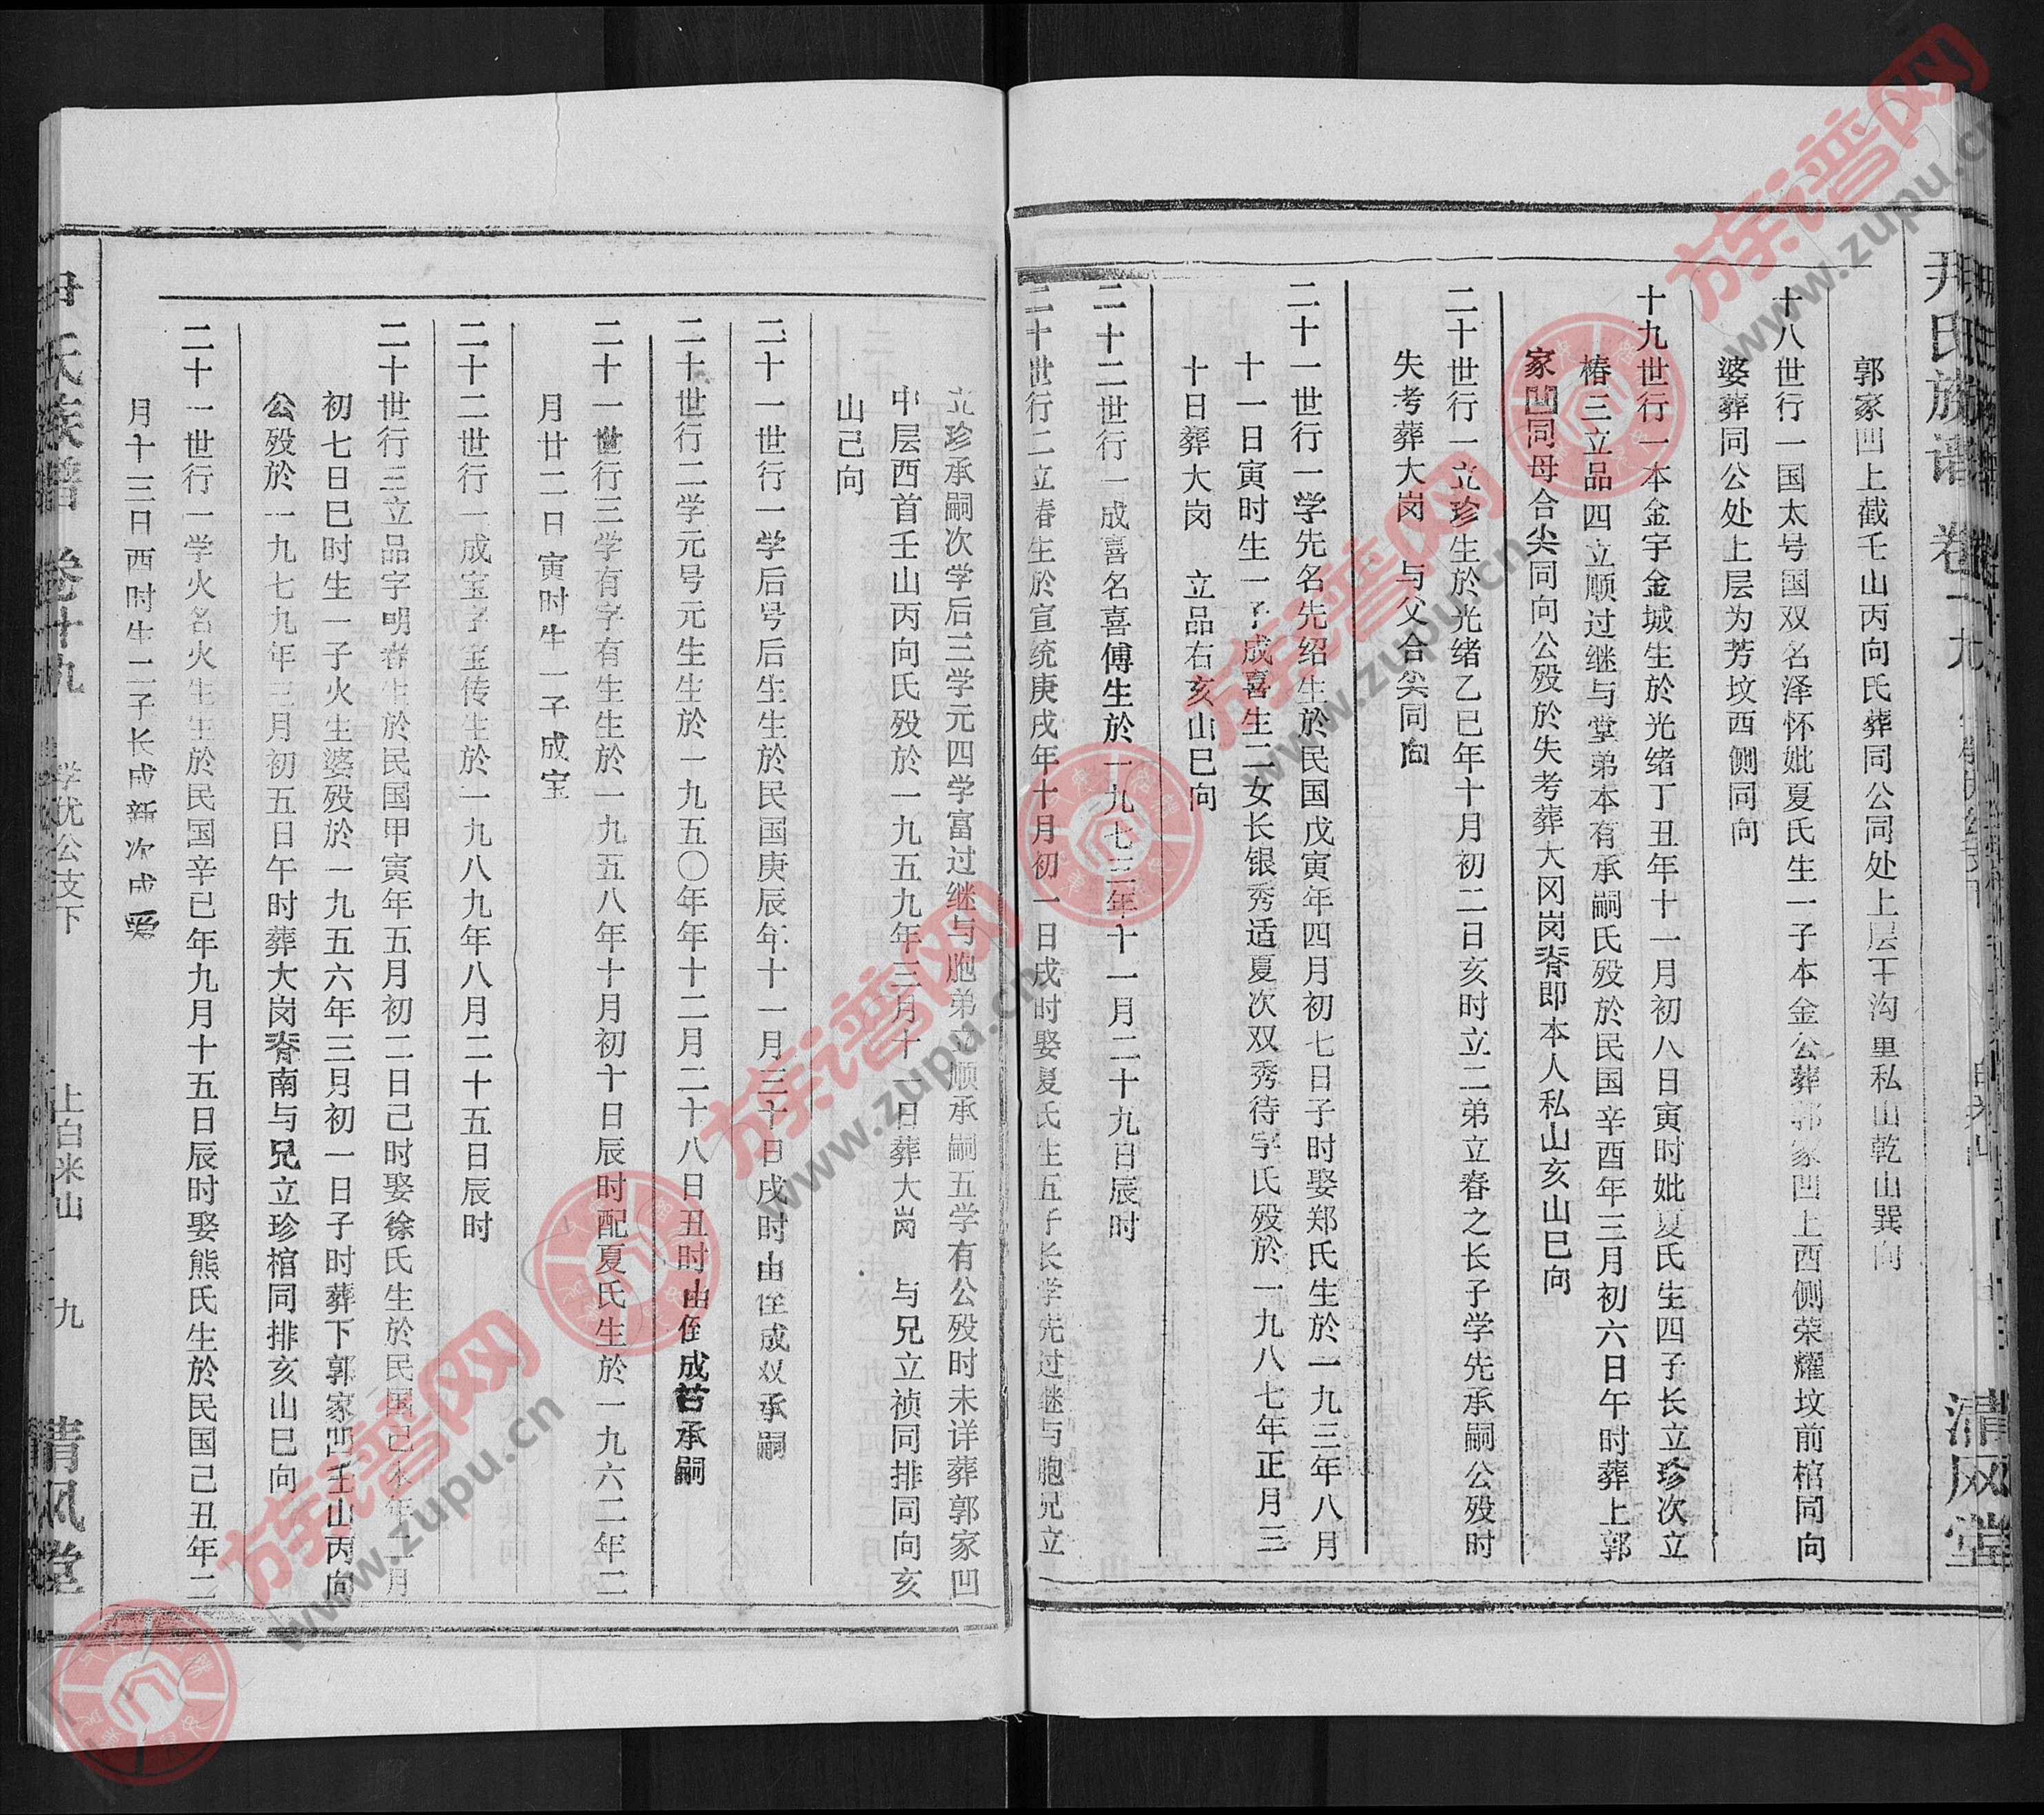 尹氏族谱 卷十九
清风堂
郭家凹上截壬山丙向氏葬同公同处上层干沟里私山乾山巽向
十八世行一国太号国双名泽怀妣夏氏生一子本金公葬郭家凹上西侧荣耀坟前棺同向
婆葬同公处上层为芳坟西侧同向
十九世行一本金字金城生於光绪丁丑年十一月初八日寅时妣夏氏生四子长立珍次立
椿三立品四立顺过继与堂弟本有承嗣氏殁於民国辛酉年三月初六日午时葬上郭
家凹同母合尖同向公殁於失考葬大冈岗脊即本人私山亥山巳向
二十世行一立珍生於光绪乙巳年十月初二日亥时立二弟立春之长子学先承嗣公殁时
失考葬大岗 与父合尖同向
二十一世行一学先名先绍生於民国戊寅年四月初七日子时娶郑氏生於一九三年八月
十一日寅时生一子成喜生二女长银秀适夏次双秀待字氏殁於一九八七年正月三
十日葬大岗 立品右亥山巳向
二十二世行一成喜名喜傅生於一九七三年十一月二十九日辰时
二十世行二立春生於宣统庚戌年十月初一日戌时娶夏氏生五子长学先过继与胞兄立
立珍承嗣次学后三学元四学富过继与胞弟立顺承嗣五学有公殁时未详葬郭家凹
中层西首壬山丙向氏殁於一九五九年三月十一日葬大岗 与兄立祯同排同向亥
山己向
二十一世行一学后号后生生於民国庚辰年十一月三十日戌时由侄成双承嗣
二十世行二学元号元生生於一九五〇年年十二月二十八日丑时由侄成苔承嗣
二十一世行三学有字有生生於一九五八年十月初十日辰时配夏氏生於一九六二年二
月廿二日寅时生一子成宝
二十二世行一成宝字宝传生於一九八九年八月二十五日辰时
二十世行三立品字明春生於民国甲寅年五月初二日己时娶徐氏生於民国己未年二月
初七日巳时生一子火生婆殁於一九五六年三月初一日子时葬下郭家凹壬山丙向
公殁於一九七九年三月初五日午时葬大岗脊南与兄立珍棺同排亥山巳向
二十一世行一学火名火生生於民国辛巳年九月十五日辰时娶熊氏生於民国己丑年二
月十三日酉时生二子长成新次成爱
尹氏族谱 卷十九 学优公支下 上白米山 九 清风堂
族谱网
www.zupu.cn
族谱网
www.zupu.cn
族谱网
www.zupu.cn
族谱网
www.zupu.cn